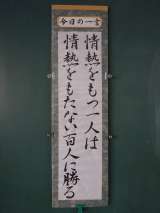 今日の一言
情熱をもつ一人は
情熱をもたない百人に勝る